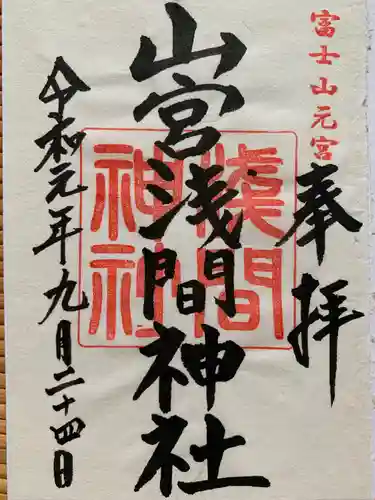 富士山元宮
奉拝
山宮浅間神社
淺間
神社
令和元年九月二十四日